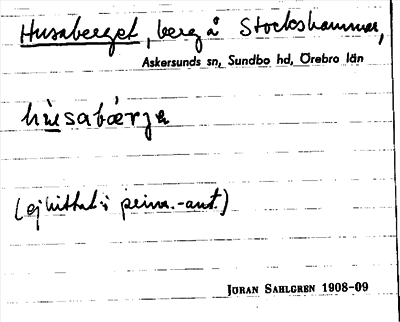 Husaberget, berg å Stockshammar,
Askersunds sn, Sundbo hd, Örebro län
hùsabærjə
(ej hittat i prima.-ant.)
JÖRAN SAHLGREN 1908-09